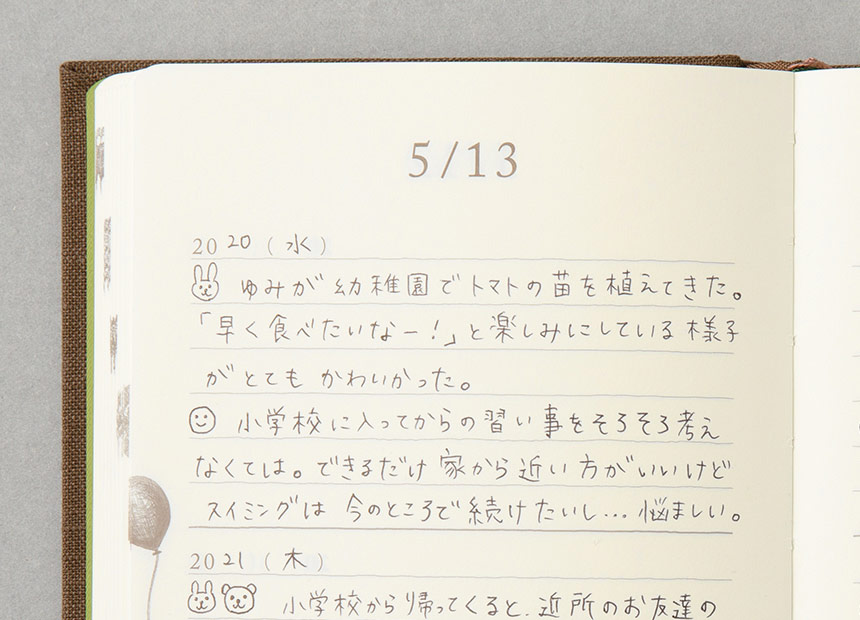 5/13
2020(水)
ゆみが幼稚園でトマトの苗を植えてきた。
「早く食べたいなー!」と楽しみにしている様子
がとても かわいかった。
小学校に入ってからの習い事をそろそろ考え
なくては。できるだけ 家から近い方がいいけど
スイミングは 今のところで続けたいし…悩ましい。
2021(木)
小学校から帰ってくると、近所のお友達の